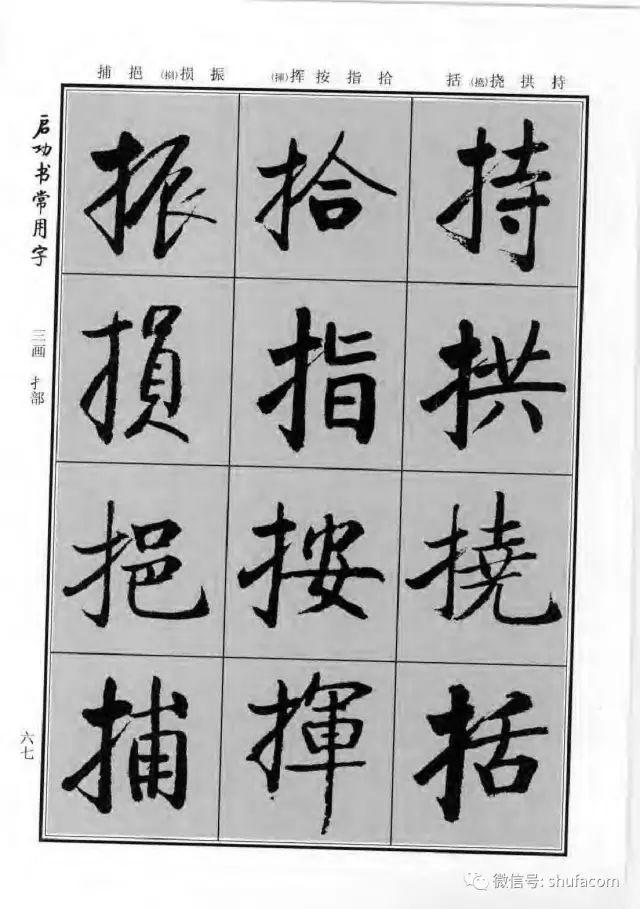 持拱挠(撓)括
拾指按挥(揮)
振损(損)挹捕
持拱撓括
拾指按揮
振損挹捕
启功书常用字
三画 扌部
六七
微信号: shufacom